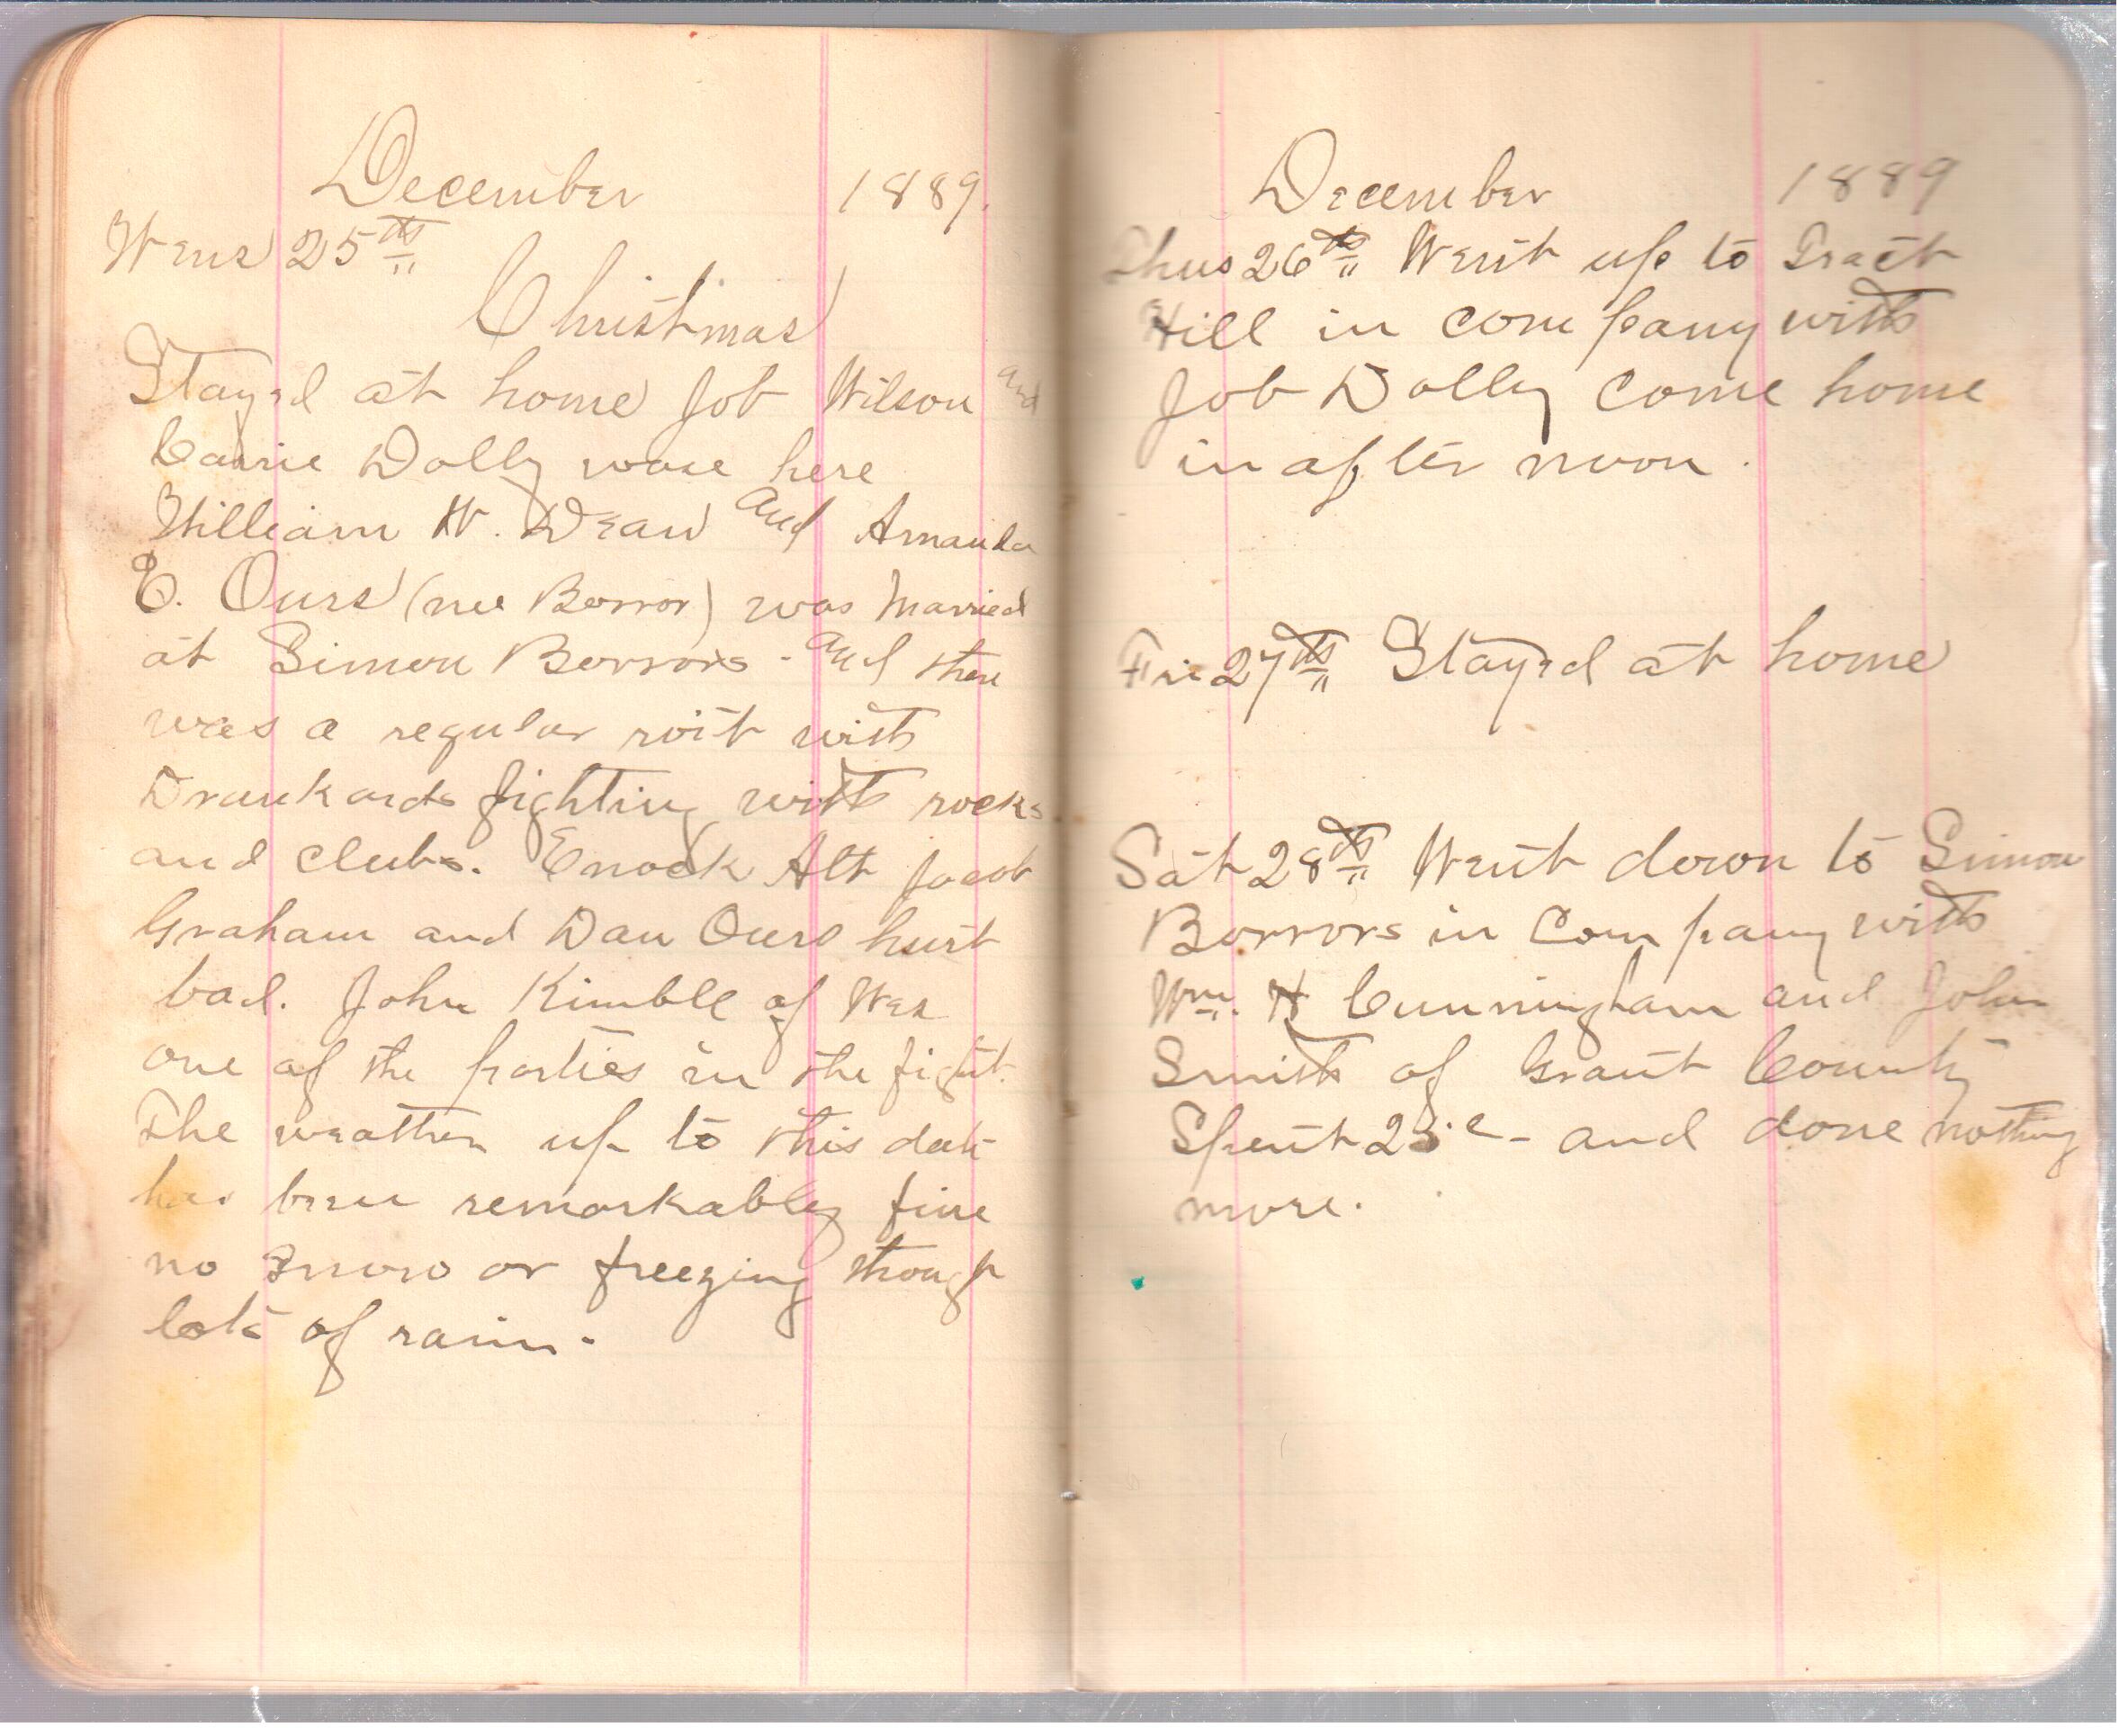 December 1889.
Wens 25th
Christmas
Stayed at home Job Wilson and
Carrie Dolly wase here
William W. Dean and Amanda
E. Ours (nee Borror) was married
at Simon Borrors - and there
was a regular roit with
Drunkards fighting with rocks
and clubs. Enock Alt Jacob
Graham and Dan Ours hurt
bad. John Kimble of Wes
one of the parties in the fight.
The weather up to this date
has been remarkably fine
no snow or freezing though
lots of rain.
December 1889
Thus 26th Went up to Tract
Hill in company with
Job Dolly come home
in after noon.
Fri 27th Stayed at home
Sat 28th Went down to Simon
Borrors in Company with
Wm. H Cunningham and John
Smith of Grant County
Spent 25c - and done nothing
more.